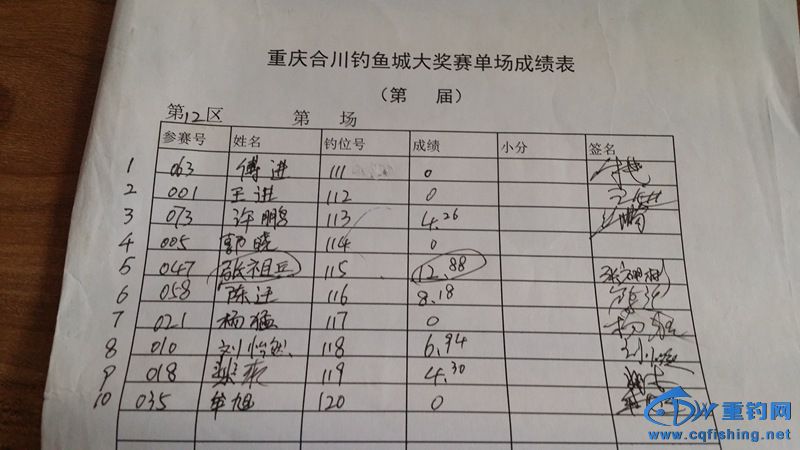 重庆合川钓鱼城大奖赛单场成绩表
（第 届）
第12区 第 场
参赛号 姓名 钓位号 成绩 小分 签名
1 063 傅进 111 0
2 001 王进 112 0
3 073 许鹏 113 4.26
4 005 郭晓 114 0
5 047 张祖兵 115 12.88
6 058 陈迁 116 8.18
7 021 杨猛 117 0 杨猛
8 010 刘怡 118 6.94
9 018 119 4.30
10 035 牟旭 120 0
重钓网
www.cqfishing.net